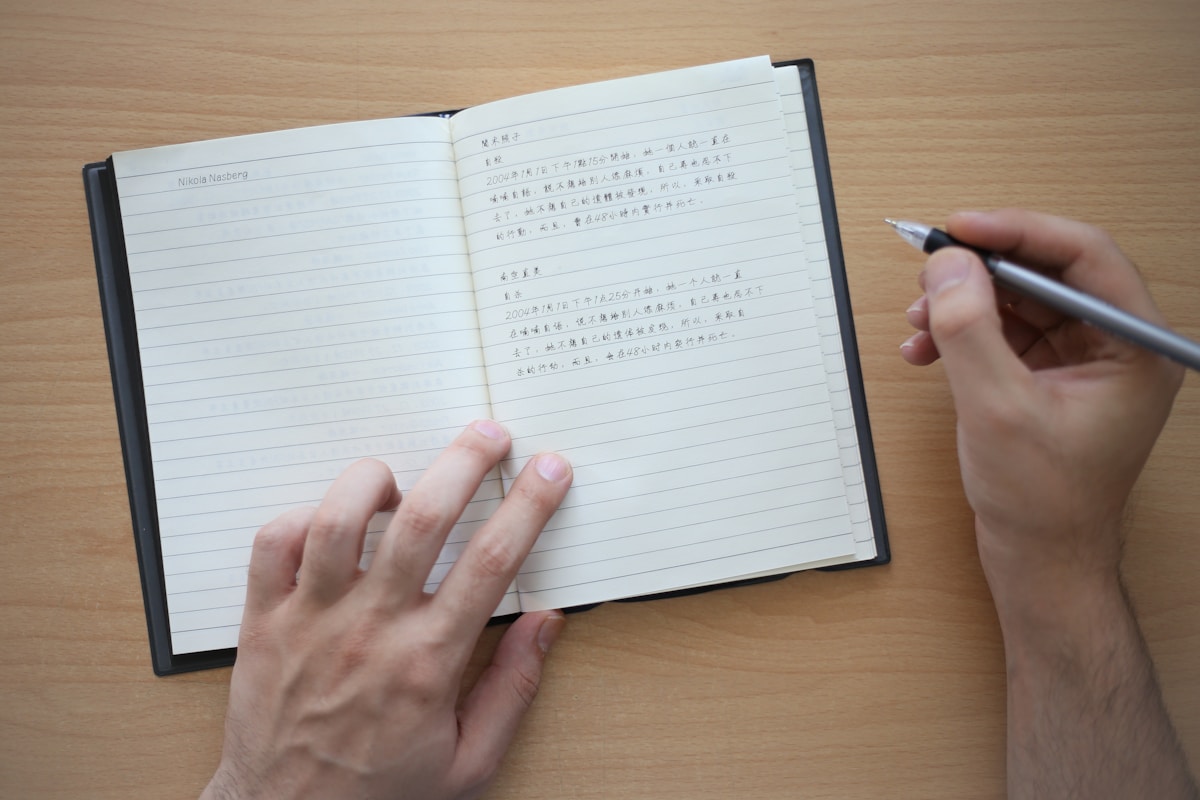 Nikola Nasberg
間木照子
自殺
2004年1月1日下午1點15分開始，她一個人就一直在
喃喃自語，說不想給別人添麻煩，自己再也活不下
去了，她不想自己的遺體被發現，所以，采取自殺
的行動。而且，會在48小時內實行并死亡。
南空直美
自杀
2004年1月1日下午1点25分开始，她一个人就一直
在喃喃自语，说不想给别人添麻烦，自己再也活不下
去了，她不想自己的遗体被发现，所以，采取自
杀的行动。而且，会在48小时内实行并死亡。